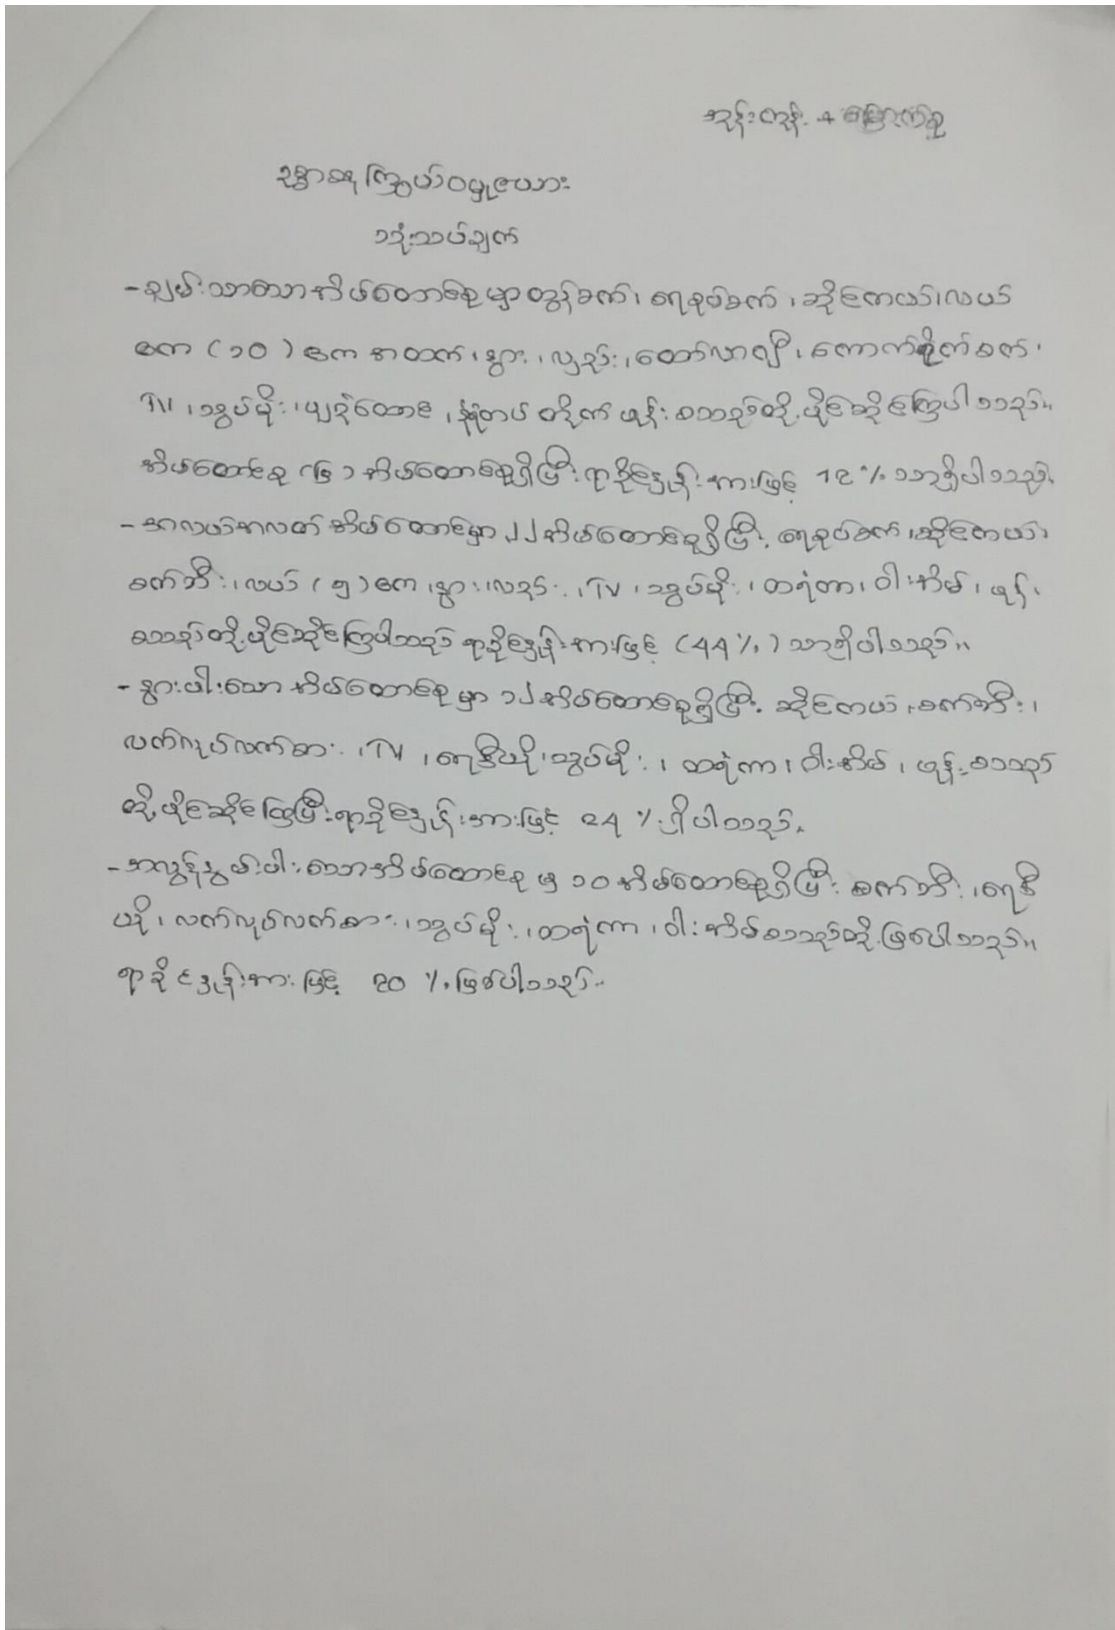 အုန်းကုန်း + မြောက်စု
ဥစ္စာဓနကြွယ်ဝမှုဇယား
သုံးသပ်ချက်
-ချမ်းသာသောအိမ်ထောင်စုမှာ ထွန်စက်၊ ရေစုပ်စက်၊ ဆိုင်ကယ်၊ လယ်
ဧက (၁၀) ဧက အထက်၊ နွား၊ လှည်း၊ ထော်လာဂျီ၊ ကောက်စိုက်စက်၊
TV ၊ သွပ်မိုး၊ ပျဉ်ထောင်၊ နံရံကပ် တိုက် ဖုန်း စသည်တို့ ပိုင်ဆိုင်ကြပါသည်။
အိမ်ထောင်စု (၆) အိမ်ထောင်စုရှိပြီး ရာခိုင်နှုန်းအားဖြင့် 12 % သာရှိပါသည်။
- အလယ်အလတ် အိမ်ထောင်မှာ ၂၂ အိမ်ထောင်စုရှိပြီး ရေစုပ်စက်၊ ဆိုင်ကယ်၊
စက်ဘီး၊ လယ် (၅) ဧက၊ နွား၊ လှည်း၊ TV ၊ သွပ်မိုး၊ ထရံကာ၊ ဝါးအိမ်၊ ဖုန်း၊
စသည်တို့ ပိုင်ဆိုင်ကြပါသည် ရာခိုင်နှုန်းအားဖြင့် (44 %) သာရှိပါသည်။
- နွမ်းပါးသော အိမ်ထောင်စုမှာ ၁၂ အိမ်ထောင်စုရှိပြီး ဆိုင်ကယ်၊ စက်ဘီး၊
လက်လုပ်လက်စား၊ TV ၊ ရေဒီယို၊ သွပ်မိုး၊ ထရံကာ၊ ဝါးအိမ်၊ ဖုန်း စသည်
တို့ ပိုင်ဆိုင်ကြပြီး ရာခိုင်နှုန်းအားဖြင့် 24 % ရှိပါသည်။
-အလွန်နွမ်းပါးသောအိမ်ထောင်စုမှ ၁၀ အိမ်ထောင်စုရှိပြီး စက်ဘီး၊ ရေဒီ
ယို၊ လက်လုပ်လက်စား၊ သွပ်မိုး၊ ထရံကာ၊ ဝါးအိမ်စသည်တို့ ဖြစ်ပါသည်။
ရာခိုင်နှုန်းအားဖြင့် 20 % ဖြစ်ပါသည်။